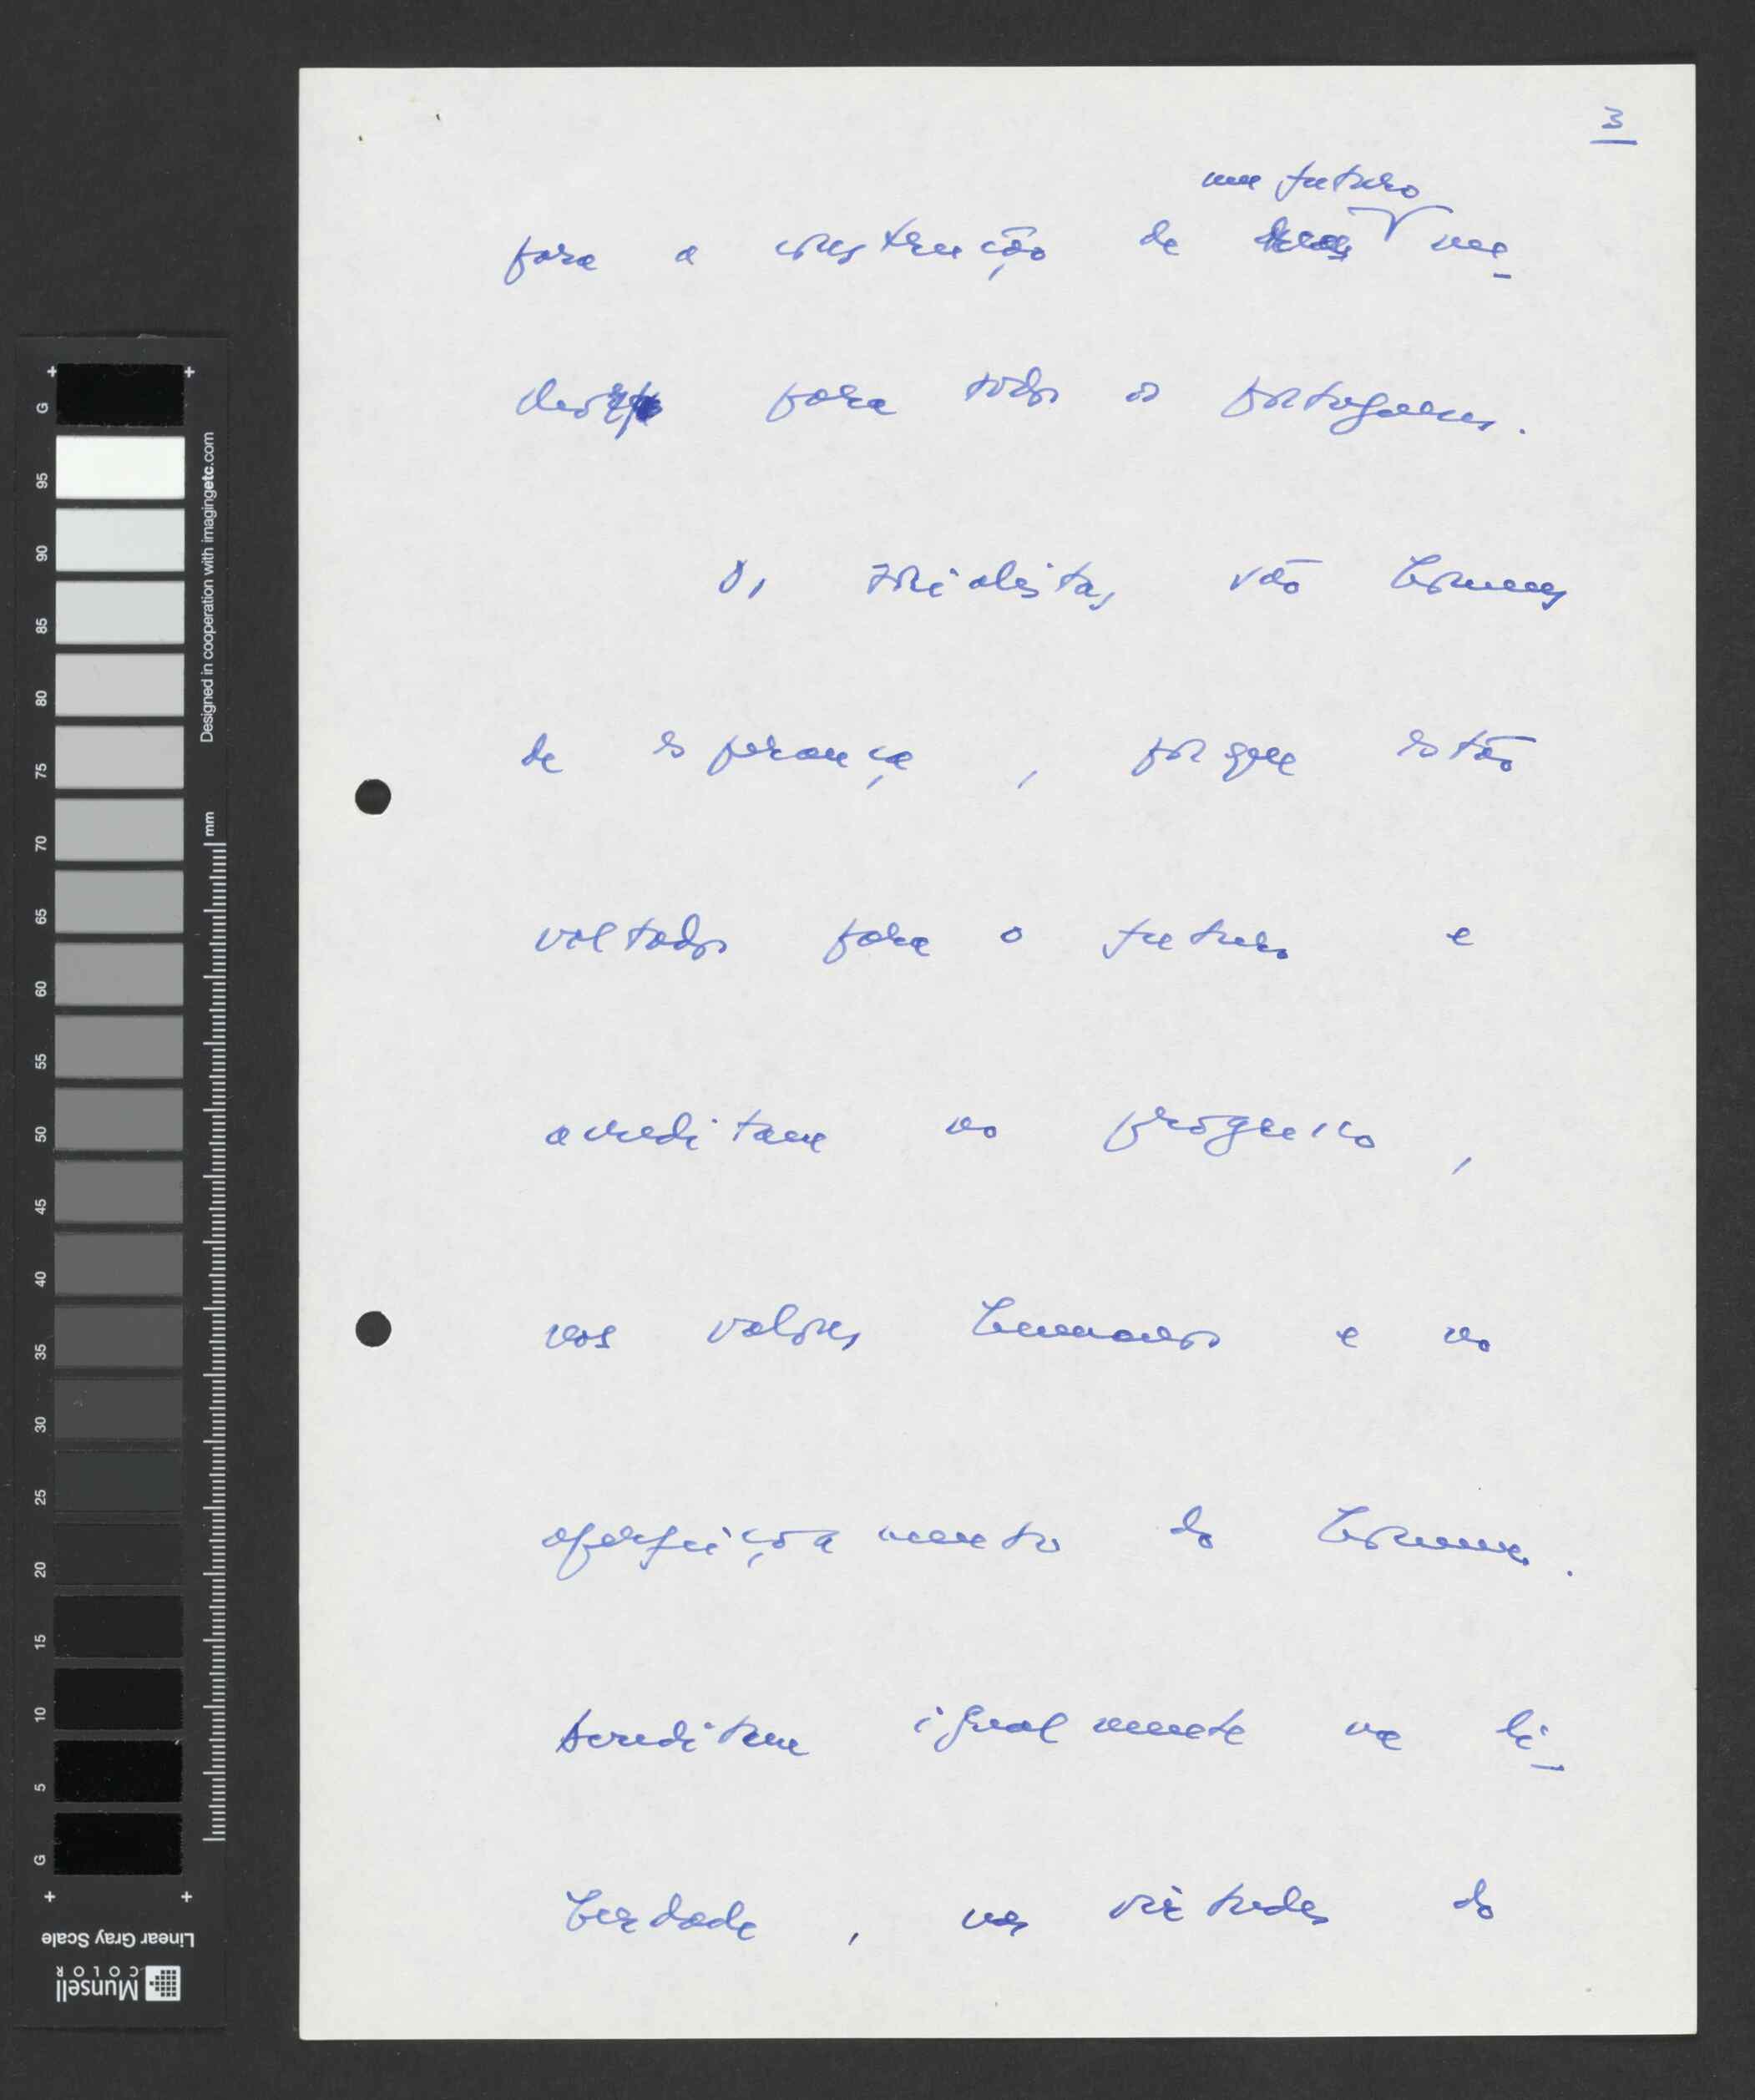 3
um futuro
para a construção de me-
lhor para todos os portugueses.
Os socialistas são homens
de esperança, porque estão
voltados para o futuro e
acreditam no progresso,
nos valores humanos e no
aperfeiçoamento do homem.
Acreditam igualmente na li-
berdade, nas virtudes do
G 95 90 85 80 75 70 65 60 55 50 45 40 35 30 25 20 15 10 5 G
Designed in cooperation with imagingetc.com
mm
Linear Gray Scale
Munsell
COLOR